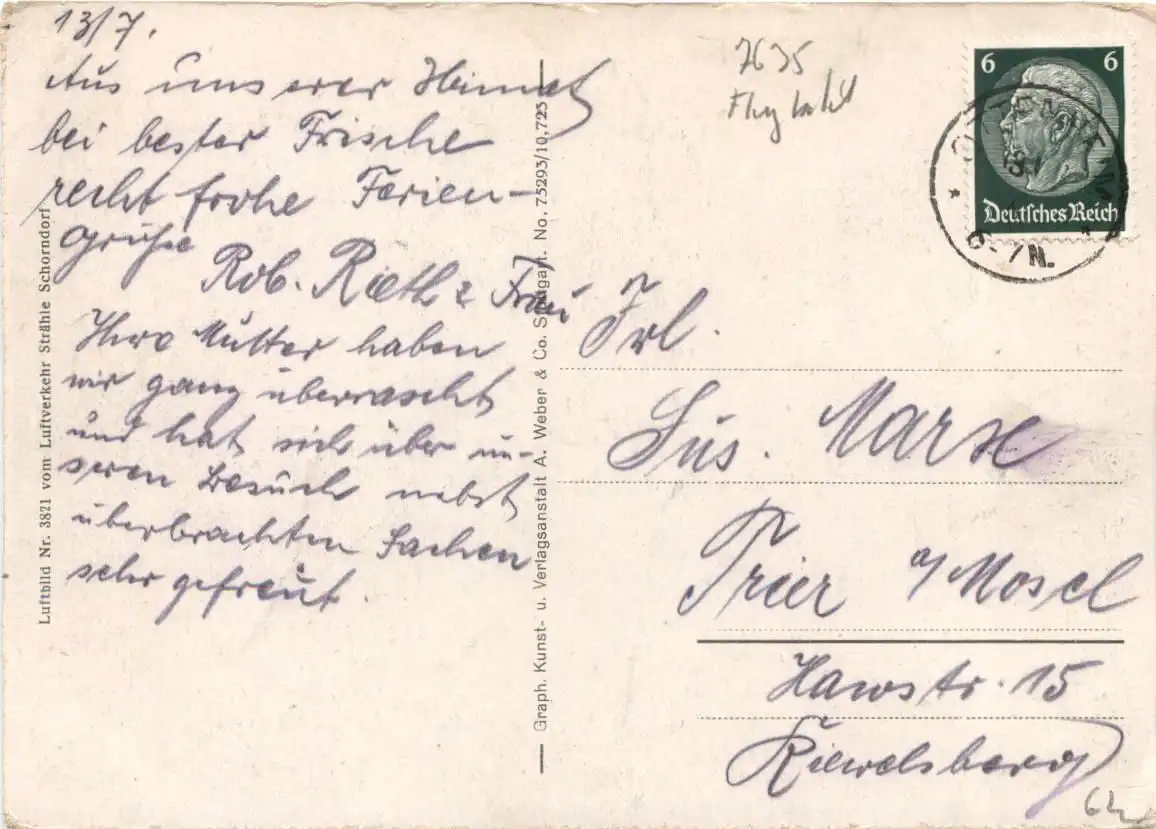 13/7.
Aus unserer Heimat
bei bester Frische
recht frohe Ferien-
grüße
Rob. Rieth & Frau
Ihre Mutter haben
wir ganz überrascht
und hat sich über un-
seren Besuch nebst
überbrachten Sachen
sehr gefreut.
Luftbild Nr. 3821 vom Luftverkehr Strähle Schorndorf
Graph. Kunst- u. Verlagsanstalt A. Weber & Co. Stuttgart. No. 75293/10,723
7635
6 6
Deutsches Reich
Frl.
Sus. Marx
Trier a/Mosel
Hawstr. 15
Kiewelsberg